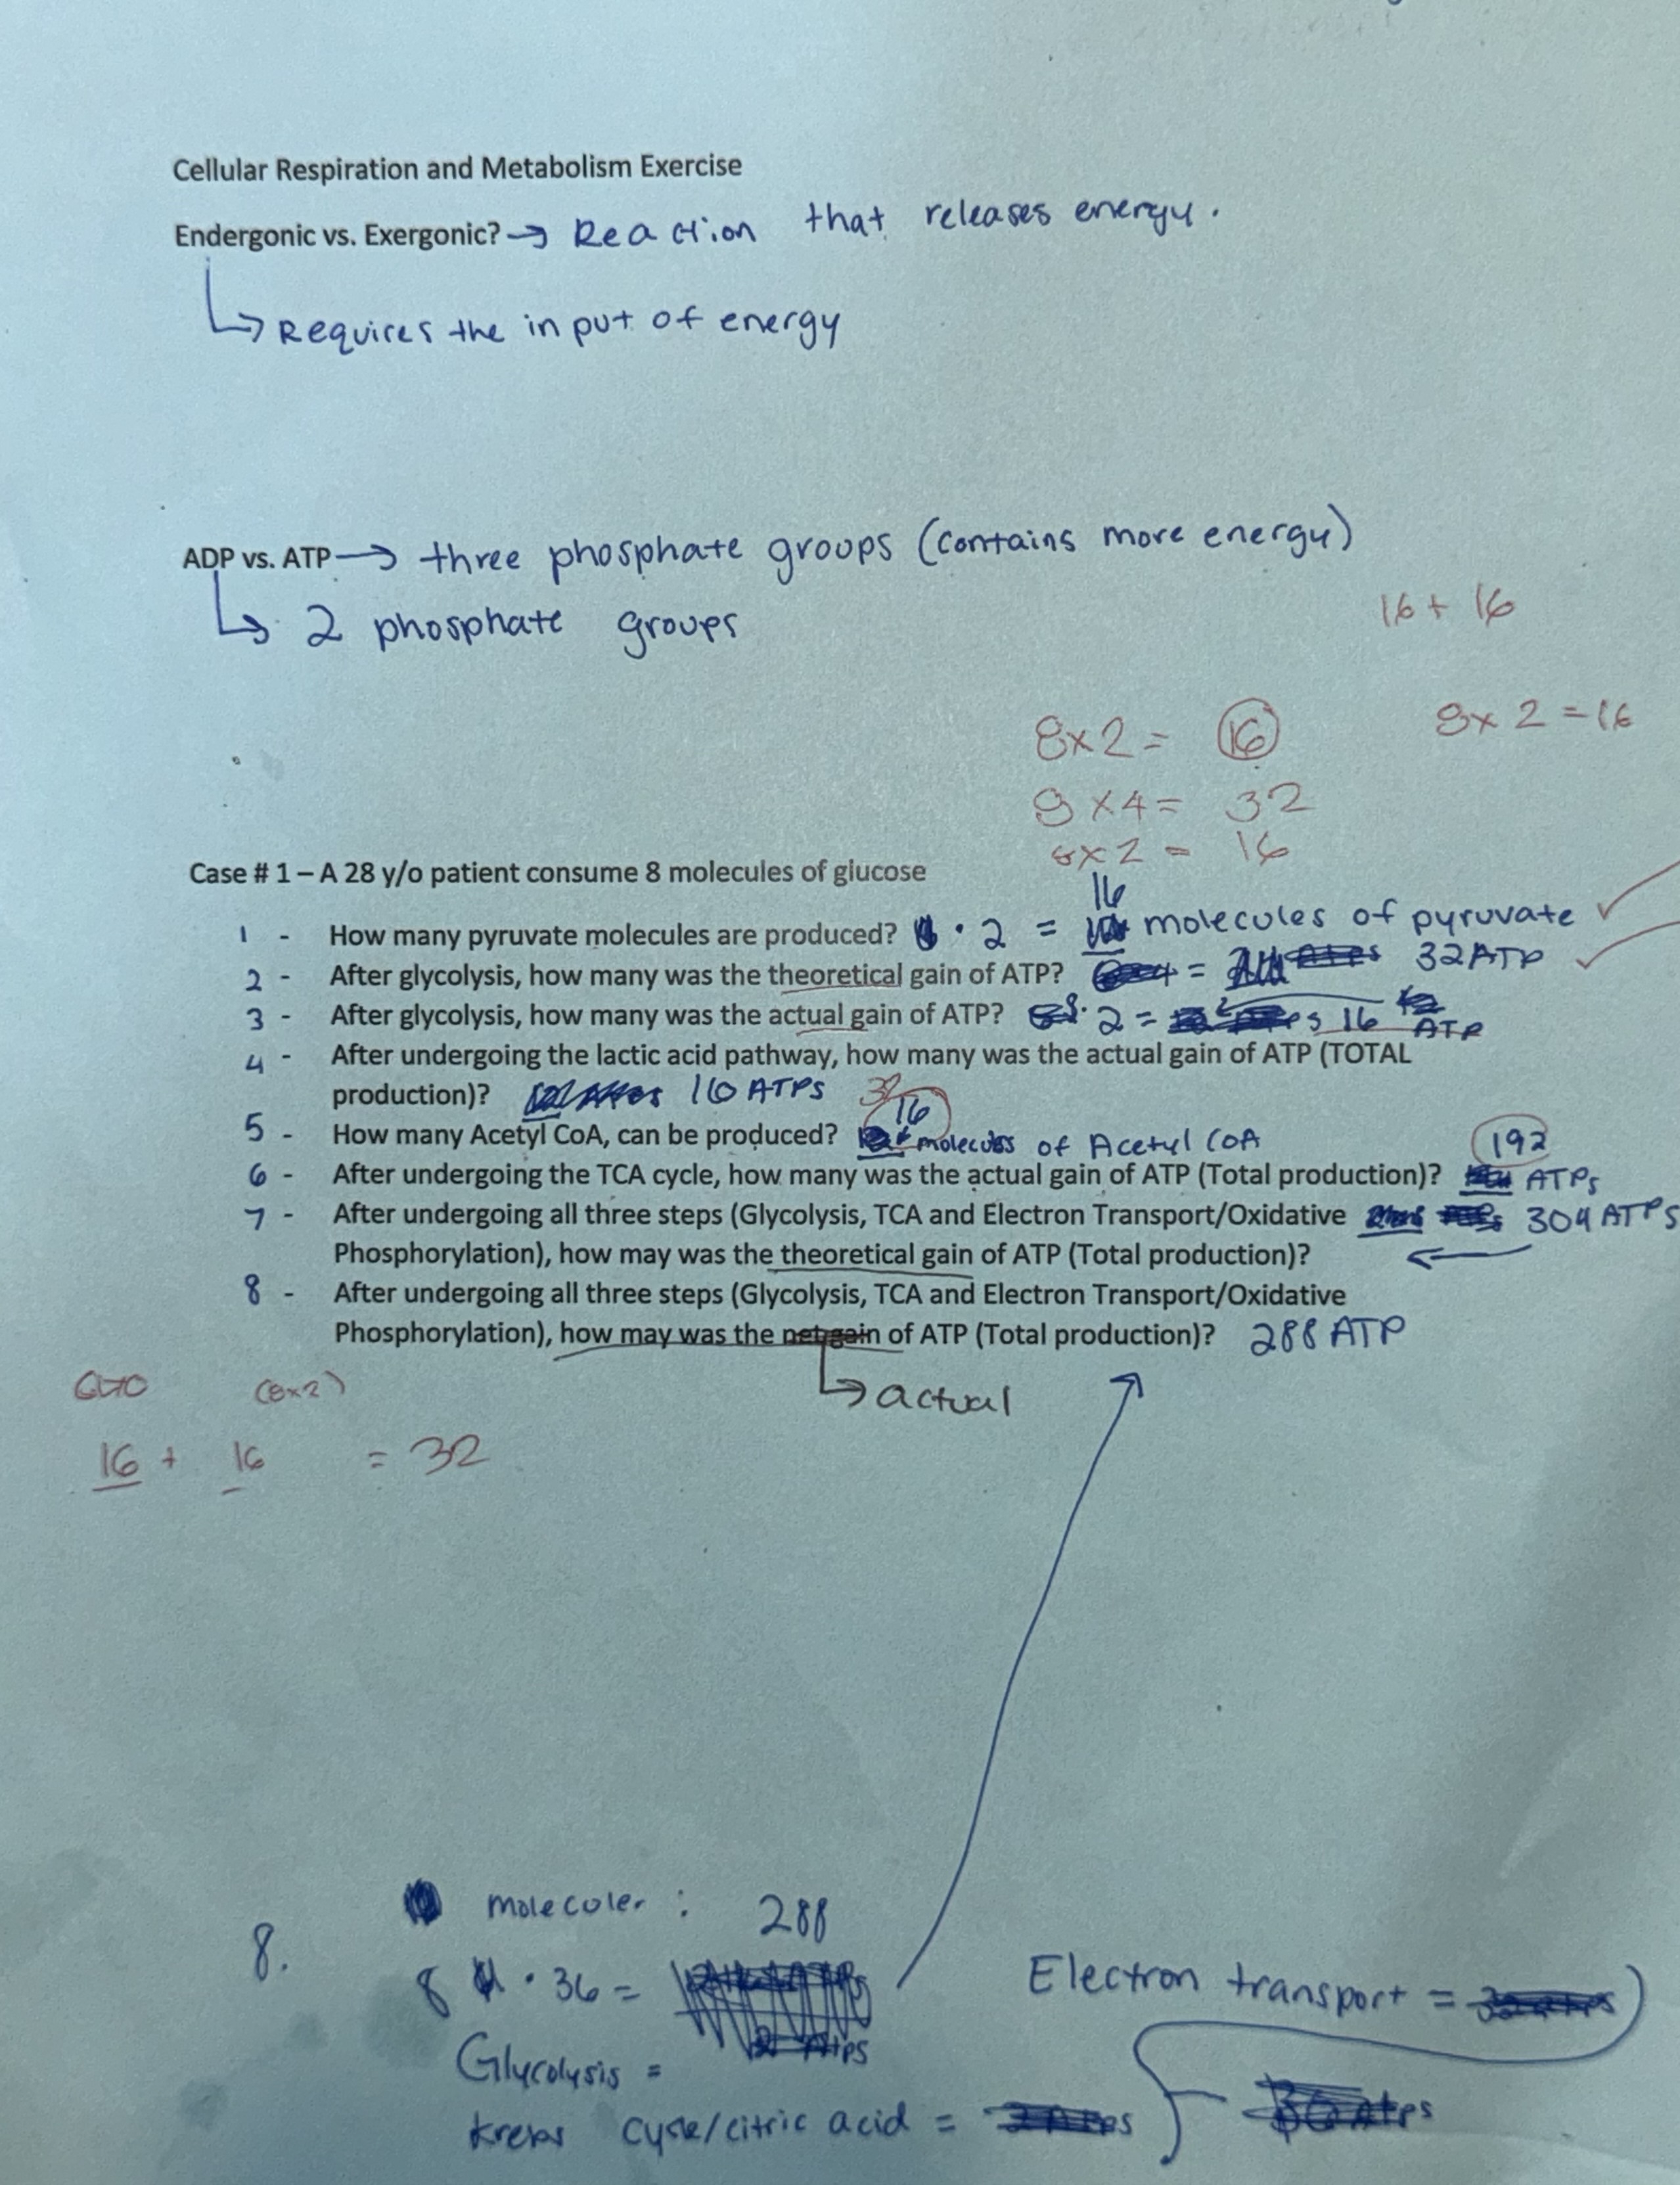 Cellular Respiration and Metabolism Exercise
Endergonic vs. Exergonic? → Reaction that releases energy.
↳ Requires the input of energy
ADP vs. ATP → three phosphate groups (contains more energy)
↳ 2 phosphate groups
16 + 16
8x2 = 16 8x 2 = 16
8 x4 = 32
8x2 = 16
Case # 1 – A 28 y/o patient consume 8 molecules of glucose
16
1 - How many pyruvate molecules are produced? · 2 = molecules of pyruvate ✓
2 - After glycolysis, how many was the theoretical gain of ATP? = 32 ATP ✓
3 - After glycolysis, how many was the actual gain of ATP? 8· 2 = 16 ATP
4 - After undergoing the lactic acid pathway, how many was the actual gain of ATP (TOTAL
production)? 16 ATPs 32
16
5 - How many Acetyl CoA, can be produced? molecules of Acetyl COA
192
6 - After undergoing the TCA cycle, how many was the actual gain of ATP (Total production)? ATPs
7 - After undergoing all three steps (Glycolysis, TCA and Electron Transport/Oxidative 304 ATPs
Phosphorylation), how may was the theoretical gain of ATP (Total production)? ←
8 - After undergoing all three steps (Glycolysis, TCA and Electron Transport/Oxidative
Phosphorylation), how may was the net gain of ATP (Total production)? 288 ATP
↳ actual
(8x2)
16 + 16 = 32
8. molecules : 288
8 · 36 =
Glycolysis =
Electron transport =
Krebs cycle/citric acid =